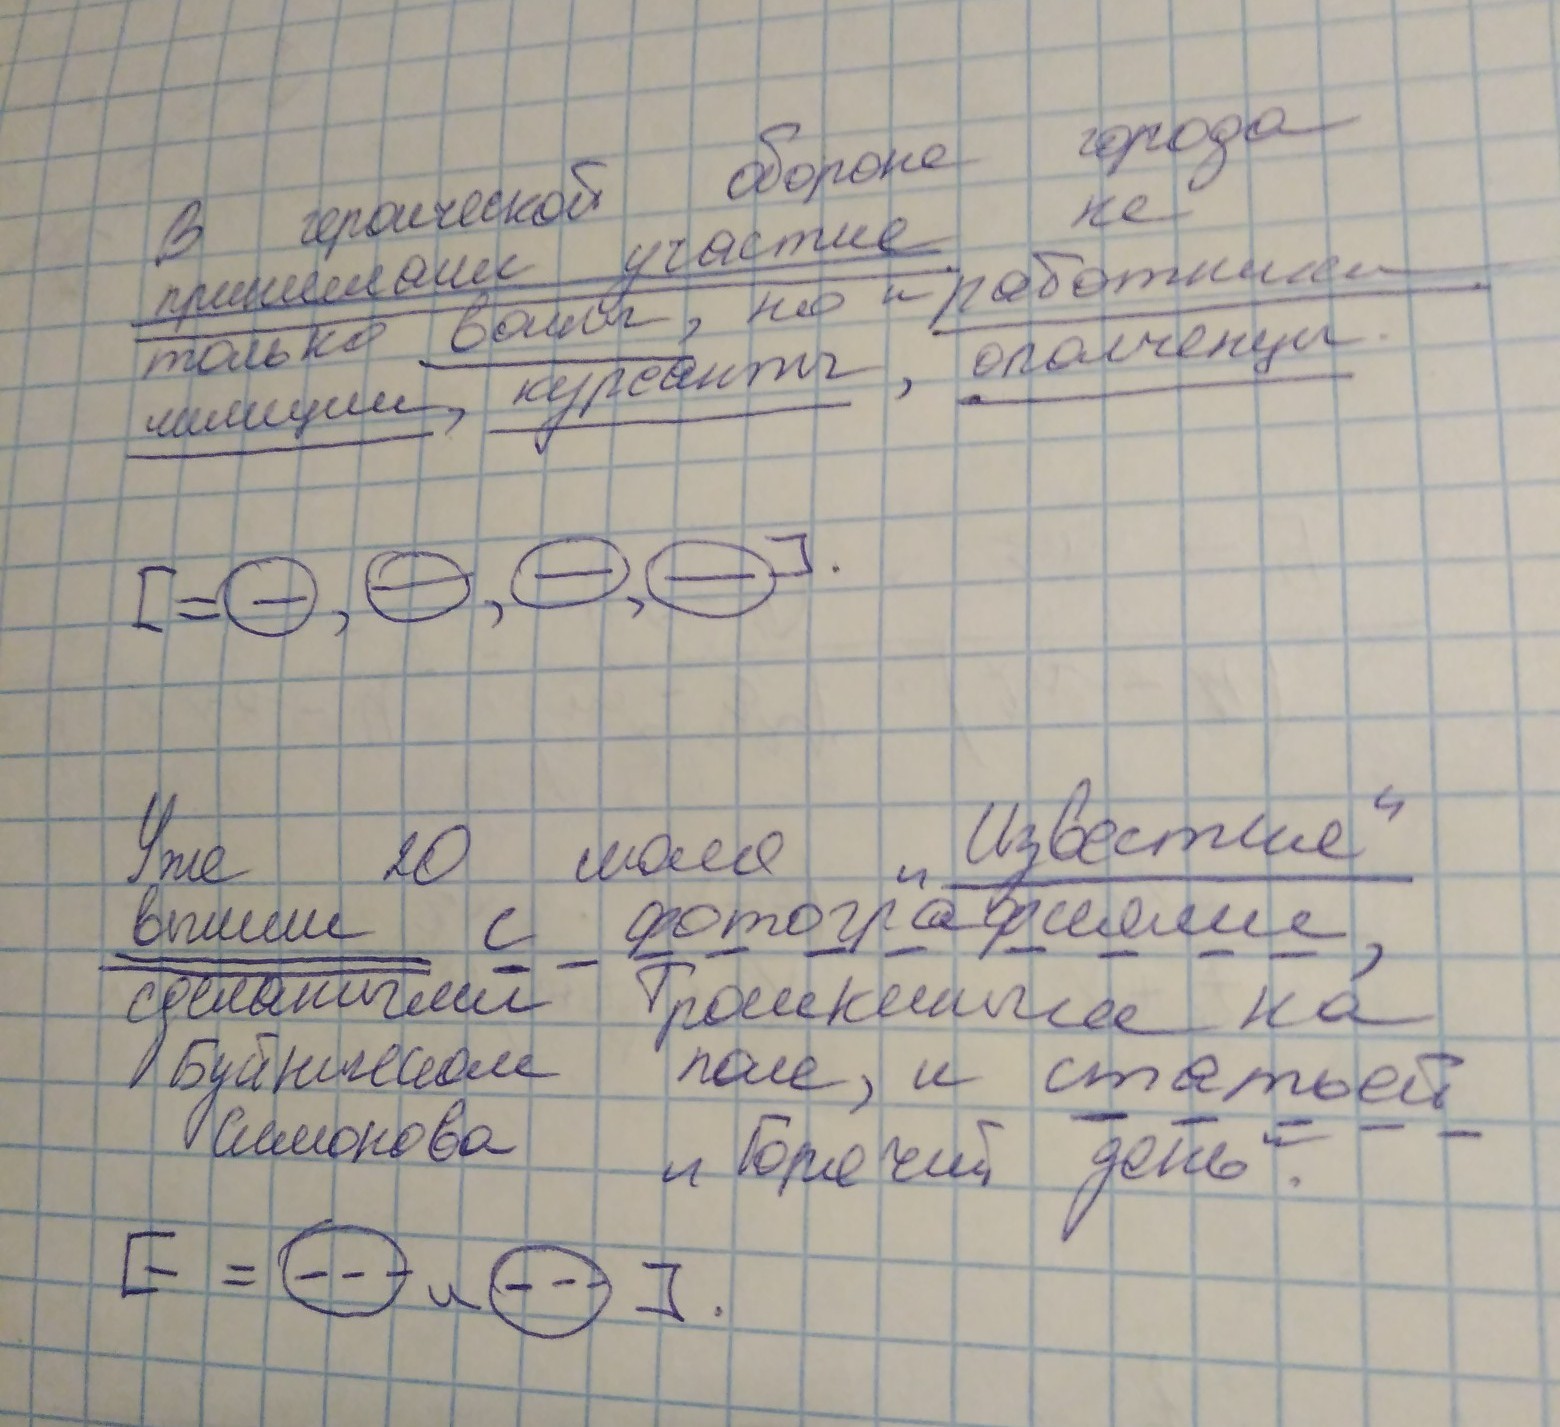 В героической обороне города
принимали участие не
только воины, но и работники
милиции, курсанты, ополченцы.
[=(—), (—), (—), (—)].
Уже 20 июля „Известия“
вышли с фотографиями,
сделанными Трошкиным на
Буйническом поле, и статьей
Симонова „Горячий день“.
[— = (---) и (---)].